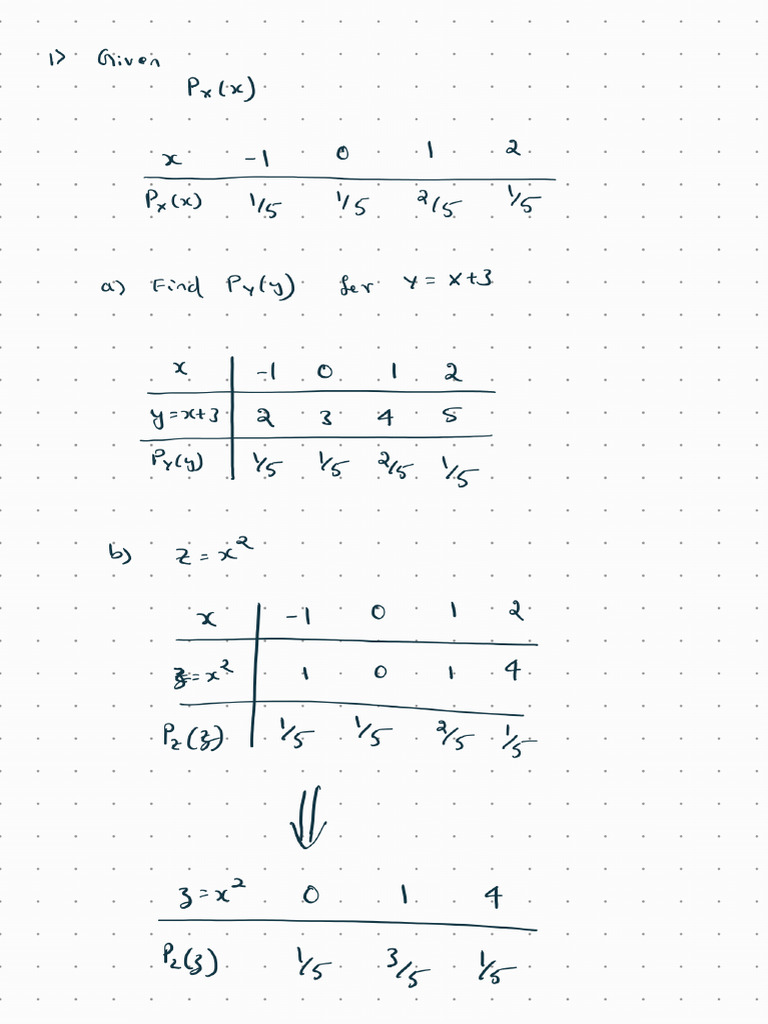 1) Given
Pₓ(x)
x -1 0 1 2
Pₓ(x) 1/5 1/5 2/5 1/5
a) Find P_Y(y) for Y = X+3
x -1 0 1 2
y=x+3 2 3 4 5
P_Y(y) 1/5 1/5 2/5 1/5
b) z = x²
x -1 0 1 2
z=x² 1 0 1 4
P_Z(z) 1/5 1/5 2/5 1/5
z=x² 0 1 4
P_Z(z) 1/5 3/5 1/5